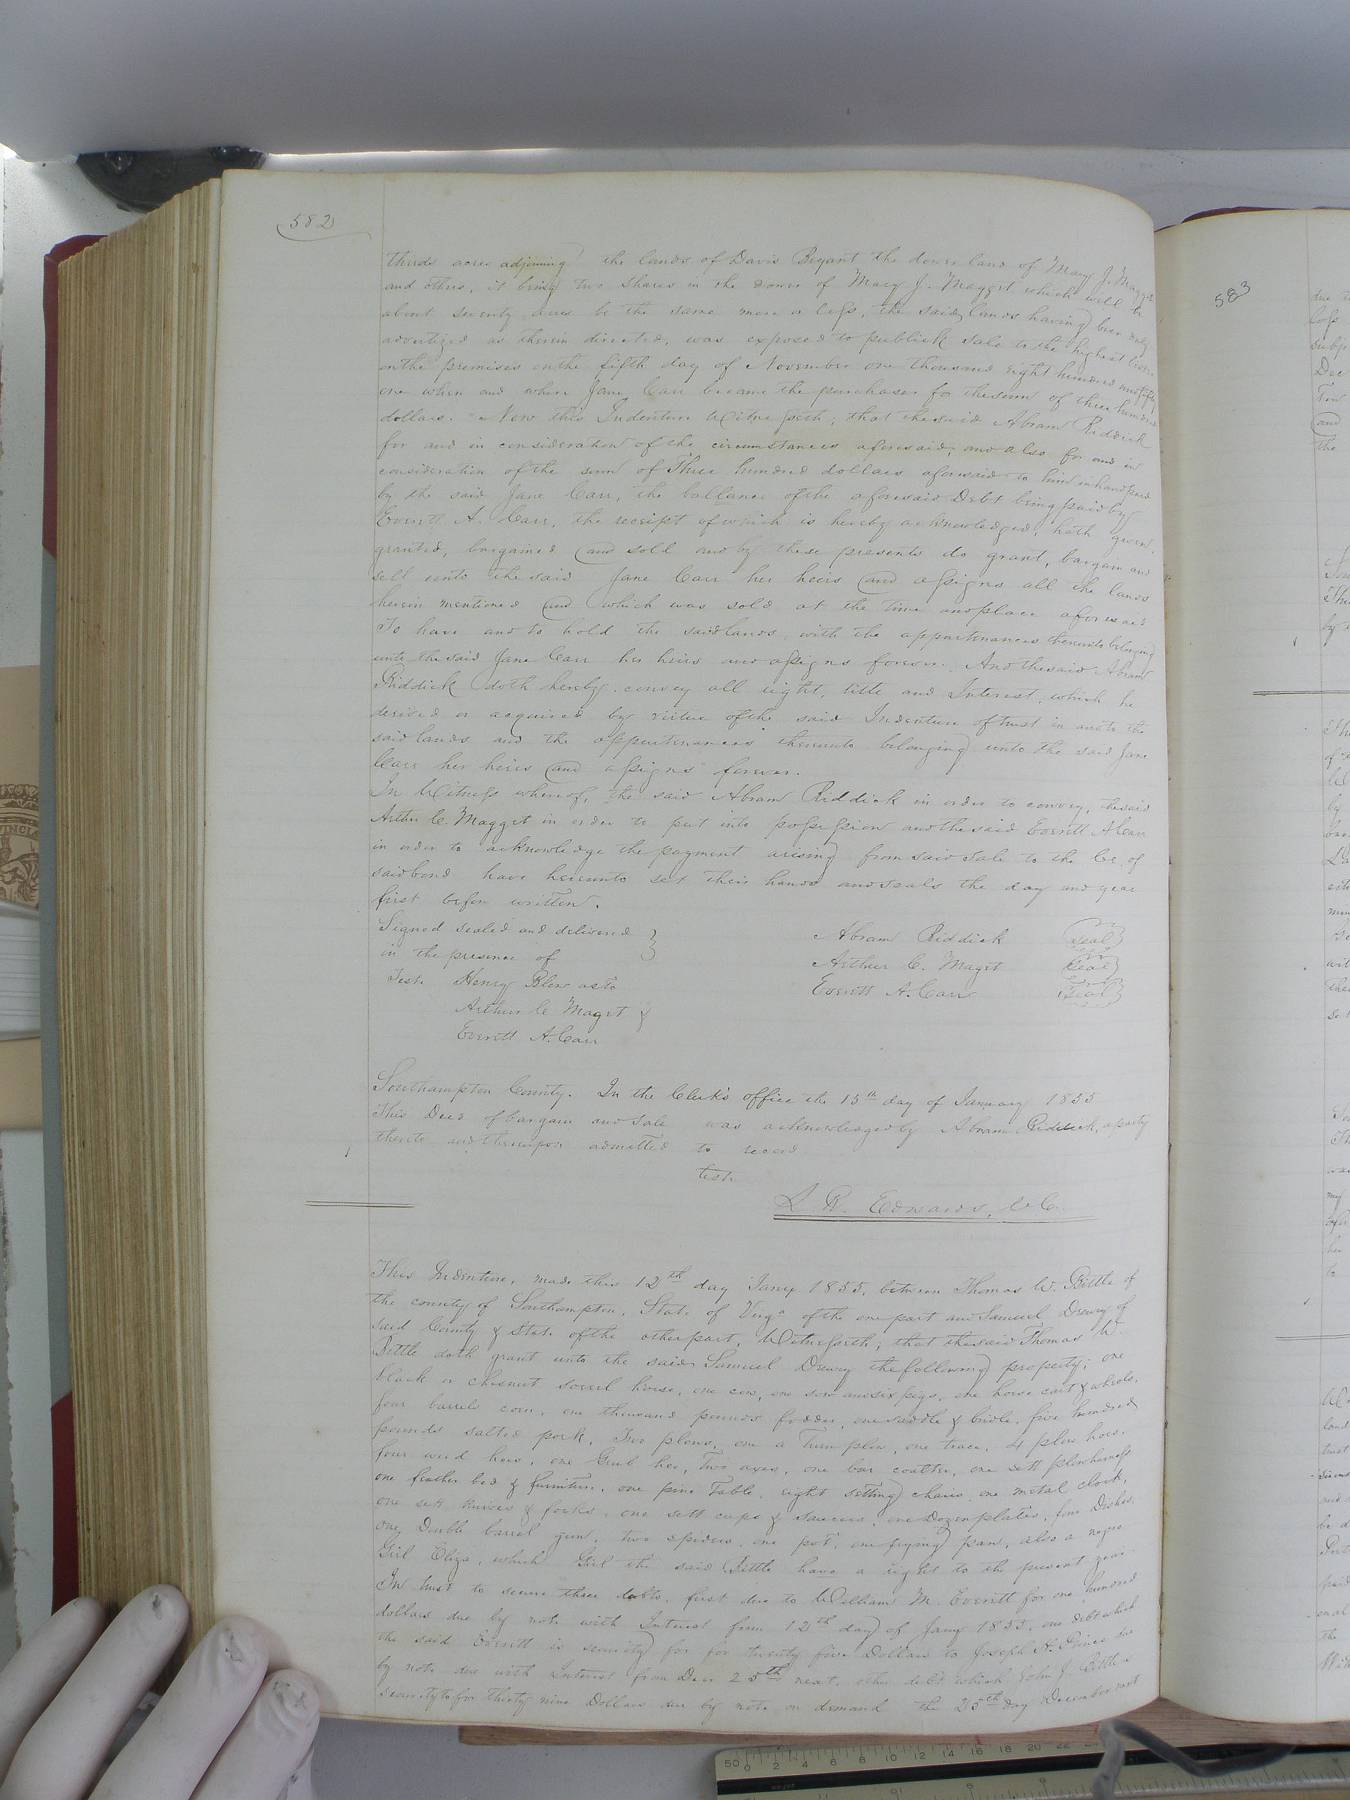 582
thirds acres adjoining the lands of Davis Bryant the dower land of Mary J. Magget
and others, it being two shares in the dower of Mary J. Magget which will be
about seventy acres be the same more or less, the said lands having been duly
advertized as therein directed, was exposed to publick sale to the highest
on the premises on the fifth day of November one thousand eight hundred and fifty
one when and where Jane Carr became the purchaser for the sum of three hundred
dollars. Now this Indenture Witnesseth; that the said Abram Riddick
for and in consideration of the circumstances aforesaid, and also for and in
consideration of the sum of Three hundred dollars aforesaid to him in hand paid
by the said Jane Carr, the ballance of the aforesaid Debt being paid by
Everitt A. Carr, the receipt of which is hereby acknowledged, hath given,
granted, bargained and sold and by these presents do grant, bargain and
sell unto the said Jane Carr her heirs and assigns all the lands
herein mentioned and which was sold at the time and place aforesaid
To have and to hold the said lands, with the appurtenances thereunto belonging
unto the said Jane Carr her heirs and assigns forever. And the said Abram
Riddick doth hereby convey all right, title and Interest, which he
derived or acquired by virtue of the said Indenture of trust in and to the
said lands and the appurtenances thereunto belonging unto the said Jane
Carr her heirs and assigns forever.
In Witness whereof, the said Abram Riddick in order to convey, the said
Arthur C. Magget in order to put into possession and the said Everitt A Carr
in order to acknowledge the payment arising from said sale to the Cr. of
said bond have hereunto set their hands and seals the day and year
first before written.
Signed sealed and delivered
in the presence of
Abram Riddick Seal
Arthur C. Maget Seal
Everitt A. Carr Seal
Test. Henry Blow as to
Arthur C Maget &
Everitt A. Carr
Southampton County. In the Clerk's office the 15th day of January 1855
This Deed of bargain and sale was acknowledged by Abram Riddick, a party
thereto and thereupon admitted to record
teste
L R. Edwards, C. C.
This Indenture, made this 12th day Jany 1855, between Thomas W. Bittle of
the county of Southampton, State of Virga of the one part and Samuel Drewry of
said County & State of the other part, Witnesseth; that the said Thomas W.
Bittle doth grant unto the said Samuel Drewry the following property; one
black or chesnut sorrel horse, one cow, one sow and six pigs, one horse cart & wheels,
four barrels corn, one thousand pounds fodder, one saddle & bridle, five hundred
pounds salted pork, Two plows, one a Turn plow, one trace, 4 plow hoes,
four weed hoes, one Grub hoe, Two axes, one bar coulter, one sett plow harness
one feather bed & furniture, one pine Table, eight setting chairs, one metal clock,
one sett knives & forks, one sett cups & saucers, one Dozen plates, four Dishes,
one Double barrel gun, two spiders, one pot, one frying pan, also a negro
Girl Eliza, which Girl the said Bittle have a right to the present year
In trust to secure three debts, first due to William M. Everitt for one hundred
dollars due by note with Interest from 12th day of Jany 1855, one debt which
the said Everitt is security for for twenty five Dollars to Joseph H. Prince due
by note due with Interest from Decr 25th next, other debt which John J. Bittle is
security to for thirty nine Dollars due by note on demand the 25th day December next
583